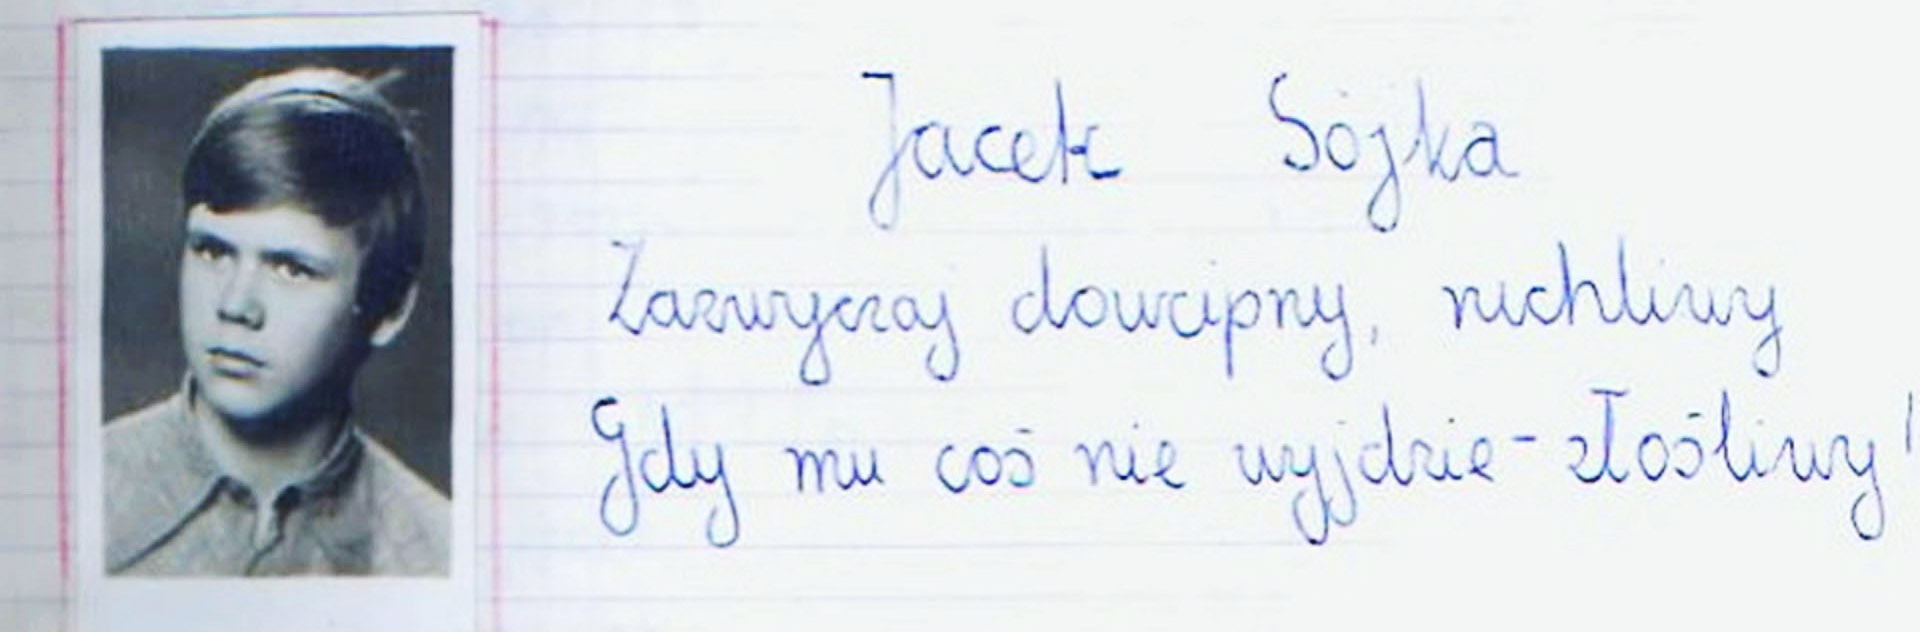 Jacek Sójka
Zazwyczaj dowcipny, ruchliwy
Gdy mu coś nie wyjdzie - złośliwy!